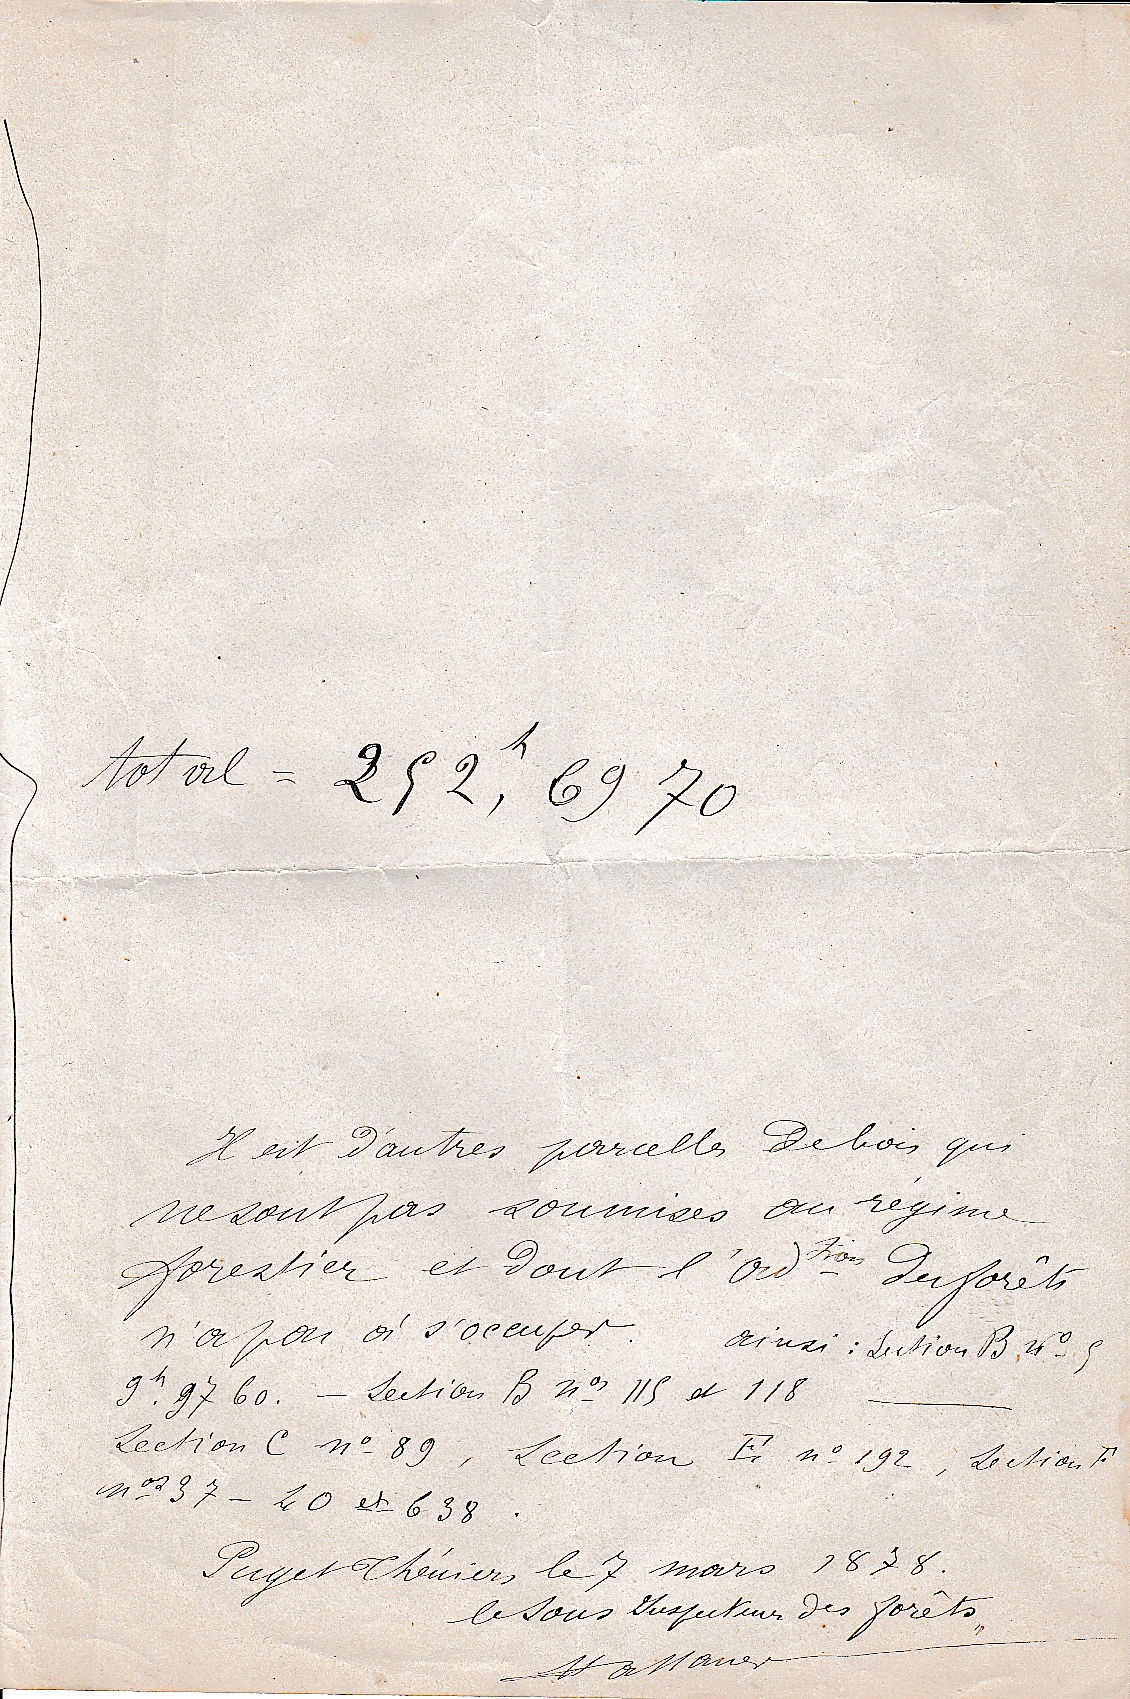 total = 252,h 69 70
Il est d'autres parcelles de bois qui
ne sont pas soumises au régime
forestier et dont l' des forêts
n'a pas à s'occuper. ainsi : Section B nº 5
9h. 97 60. — Section B nos 115 et 118 ———
Section C nº 89 , Section E nº 192 , Section F
nos 37 - 40 et 638 .
Puget Théniers le 7 mars 1878.
le Sous Inspecteur des forêts,